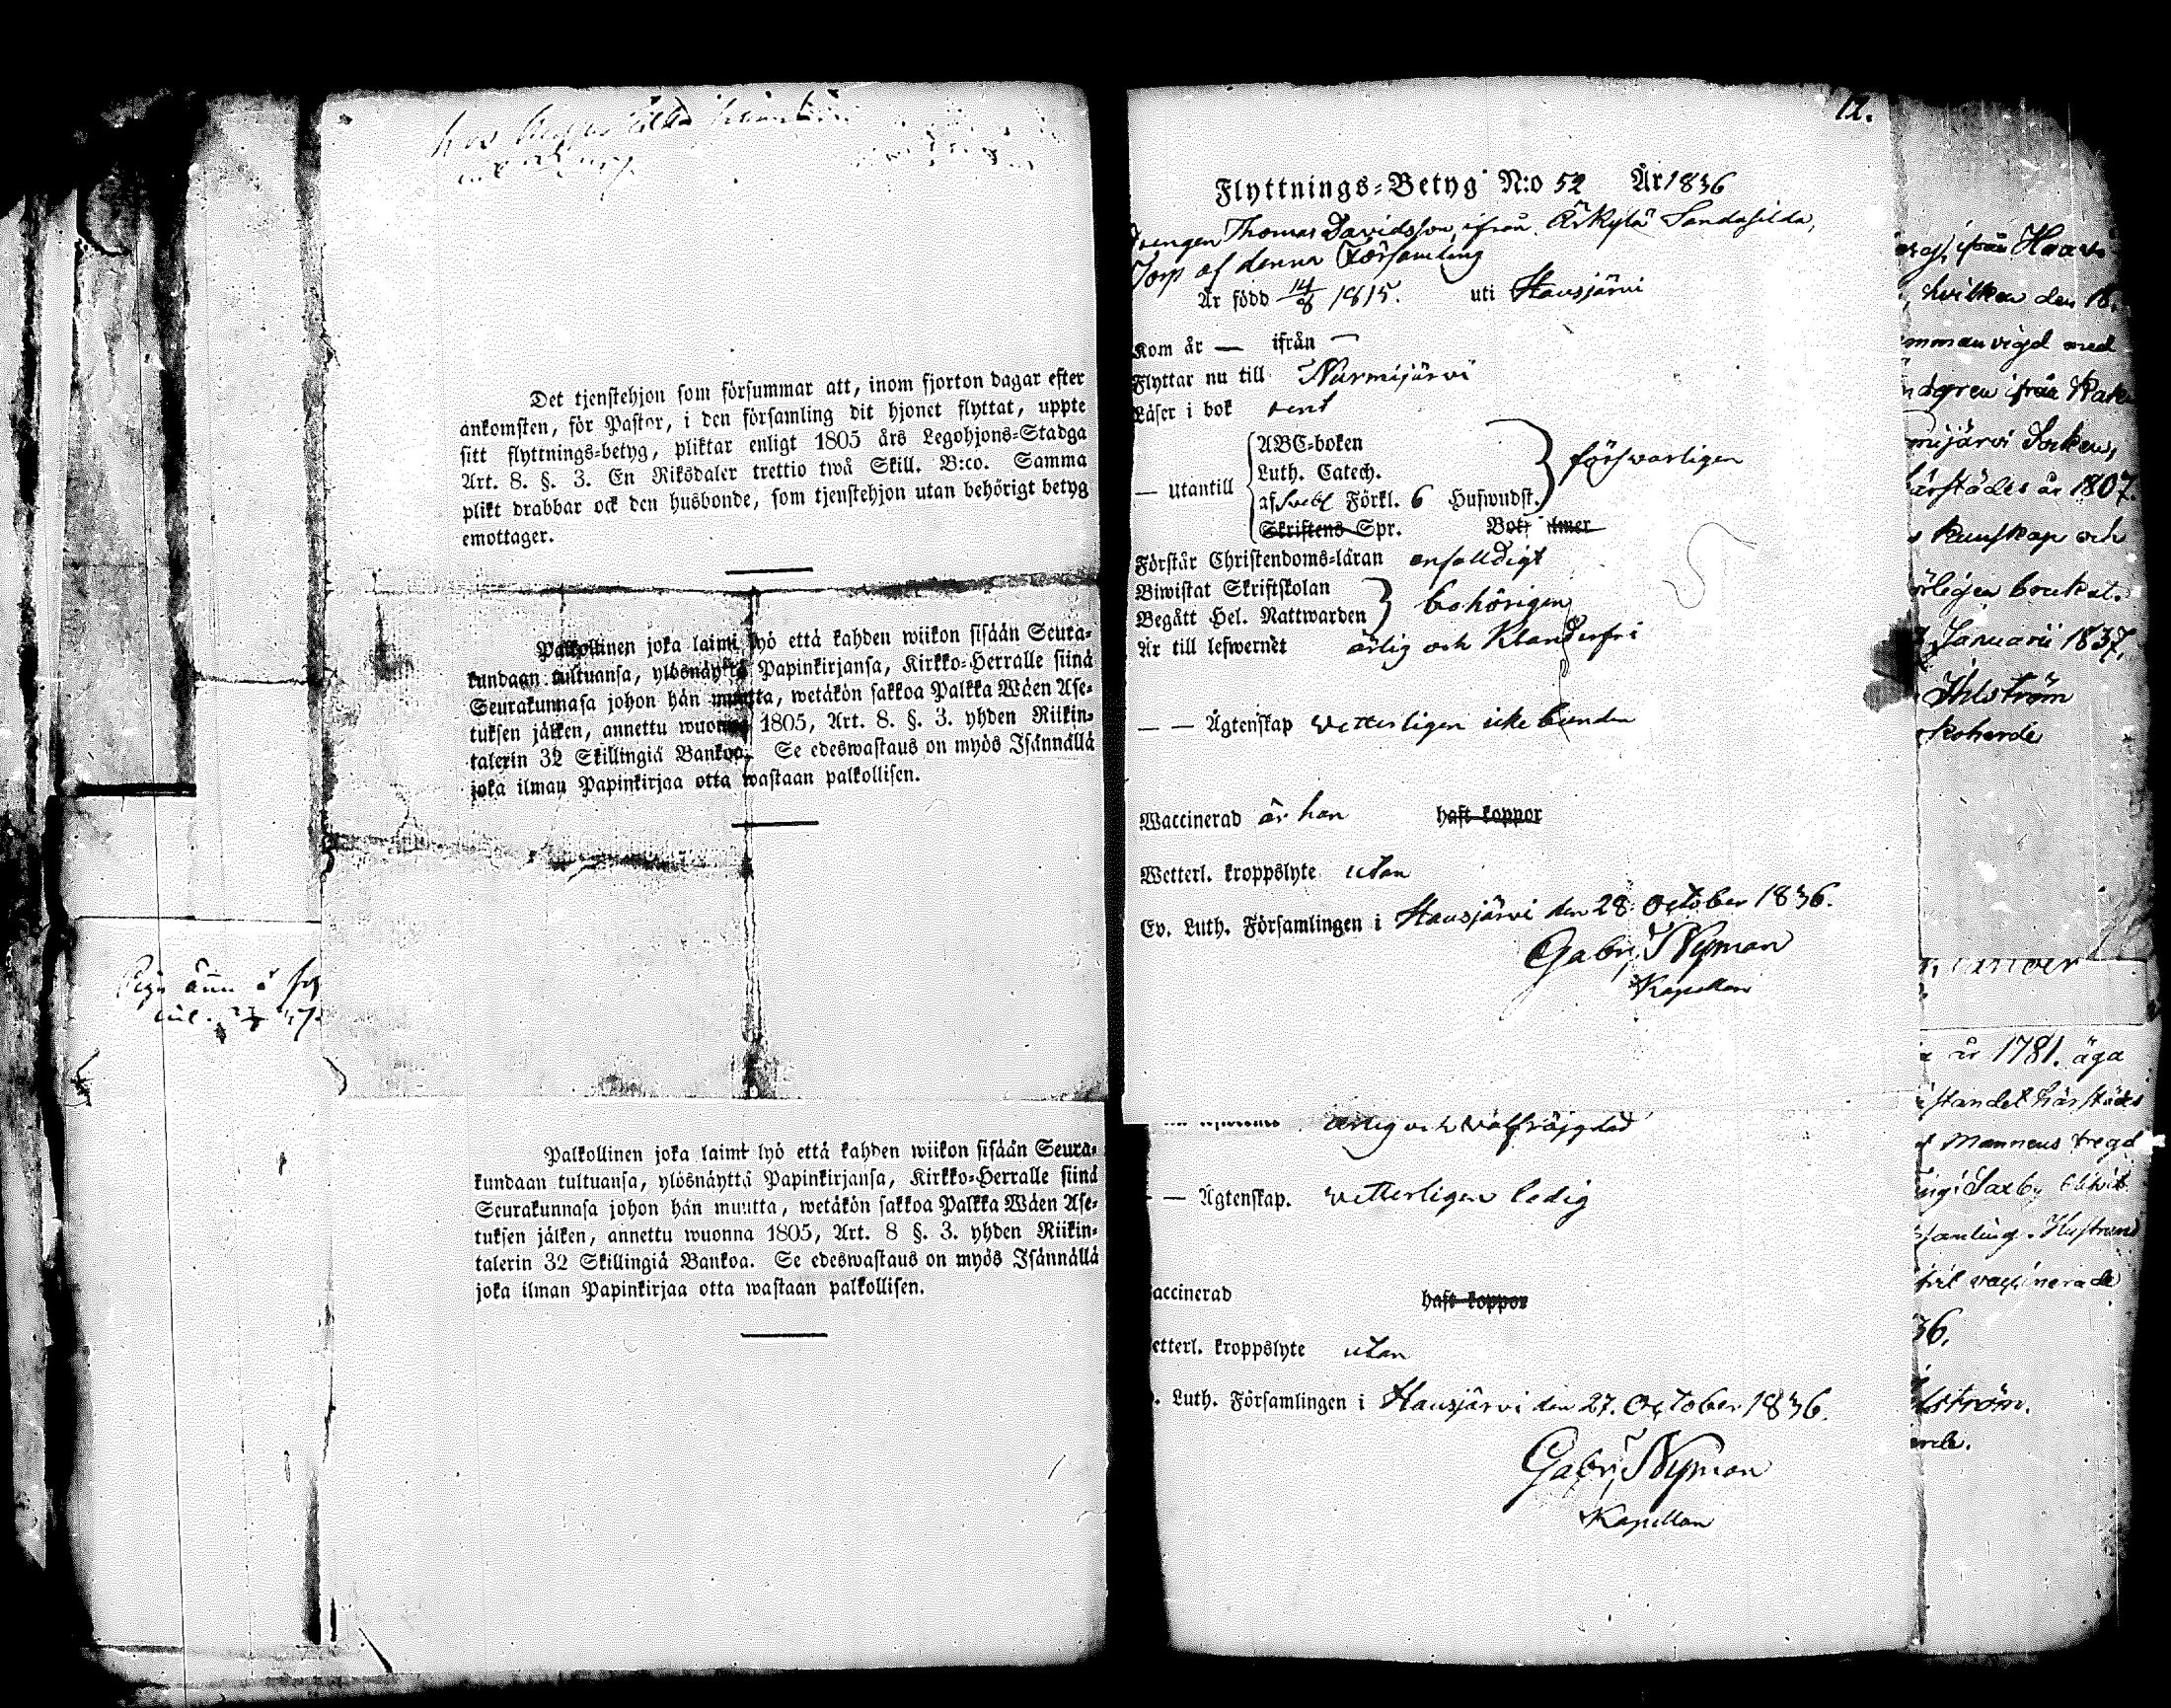 hos
Det tjenstehjon som försummar att, inom fjorton dagar efter
ankomsten, för Pastor, i den församling dit hjonet flyttat, uppte
sitt flyttnings-betyg, pliktar enligt 1805 års Legohjons-Stadga
Art. 8. §. 3. En Riksdaler trettio twå Skill. B:co. Samma
plikt drabbar ock den husbonde, som tjenstehjon utan behörigt betyg
emottager.
Palkollinen joka laimi lyö että kahden wiikon sisään Seura-
kundaan tultuansa, ylösnäyttä Papinkirjansa, Kirkko-Herralle siinä
Seurakunnasa johon hän muutta, wetäkön sakkoa Palkka Wäen Ase-
tuksen jälken, annettu wuonna 1805, Art. 8. §. 3. yhden Riikin-
talerin 32 Skillingiä Bankoa. Se edeswastaus on myös Isännällä
joka ilman Papinkirjaa otta wastaan palkollisen.
Palkollinen joka laimi lyö että kahden wiikon sisään Seura-
kundaan tultuansa, ylösnäyttä Papinkirjansa, Kirkko-Herralle siinä
Seurakunnasa johon hän muutta, wetäkön sakkoa Palkka Wäen Ase-
tuksen jälken, annettu wuonna 1805, Art. 8 §. 3. yhden Riikin-
talerin 32 Skillingiä Bankoa. Se edeswastaus on myös Isännällä
joka ilman Papinkirjaa otta wastaan palkollisen.
12.
Flyttnings-Betyg N:o 52 År 1836
Drengen Thomas Davidsson ifrån Erkylä
Torp af denna Församling
Är född 14/8 1815. uti Hausjärvi
Kom år — ifrån —
Flyttar nu till Nurmijärvi
Läser i bok rent
— utantill
ABC-boken
Luth. Catech.
af Svebl Förkl. 6 Hufwudst.
försvarligen
Skriftens Spr. Botp ilmer
Förstår Christendoms-läran enfalldigt
Biwistat Skriftskolan
Begått Hel. Nattwarden
behörigen
Är till lefwernet ärlig och Klanderfri
— — Ägtenskap vetterligen icke bunden
Waccinerad är han haft koppor
Wetterl. kroppslyte utan
Ev. Luth. Församlingen i Hausjärvi den 28. October 1836.
Gabr. Nyman
Kapellan
ärlig och välfräjdad
— Ägtenskap. vetterligen ledig
accinerad haft koppor
etterl. kroppslyte utan
. Luth. Församlingen i Hausjärvi den 27. October 1836.
Gabr. Nyman
Kapellan
ifrån Haar
hvilken den 18.
mmanvigd med
ndgren ifrån Rak
mijärvi Socken,
härstädes år 1807.
kunskap och
rligen brukat.
Januarii 1837.
Ihlström
koherde
år 1781. äga
standet härstädes
Mannens tregd
församling. Hustrun
vaccinerade
36.
lström.
erde.